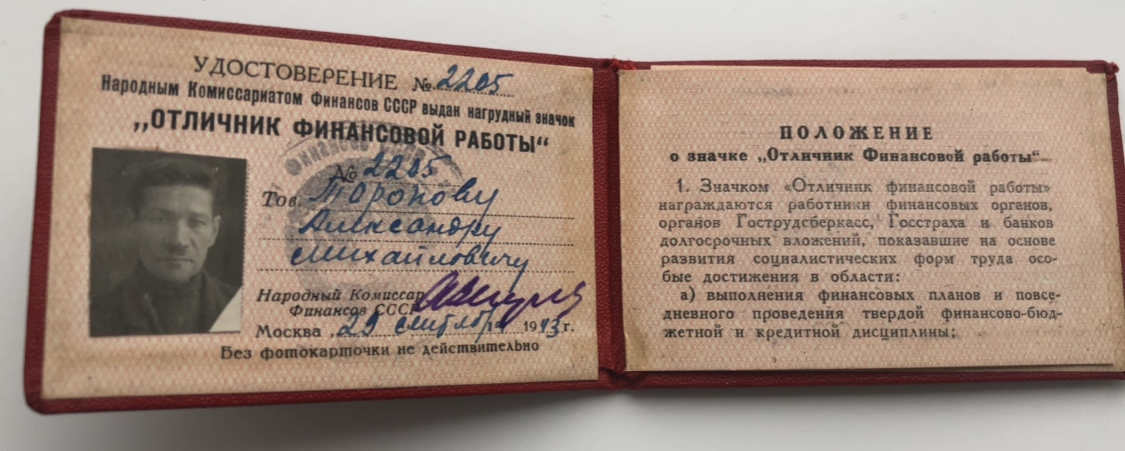 УДОСТОВЕРЕНИЕ № 2205
Народным Комиссариатом Финансов СССР выдан нагрудный значок
„ОТЛИЧНИК ФИНАНСОВОЙ РАБОТЫ“
№ 2205
Тов. Торопову
Александру
Михайловичу
Народный Комиссар
Финансов СССР
Москва „29 сентября 1943 г.
Без фотокарточки не действительно
ПОЛОЖЕНИЕ
о значке „Отличник Финансовой работы“
1. Значком «Отличник финансовой работы»
награждаются работники финансовых органов,
органов Гострудсберкасс, Госстраха и банков
долгосрочных вложений, показавшие на основе
развития социалистических форм труда осо-
бые достижения в области:
а) выполнения финансовых планов и повсе-
дневного проведения твердой финансово-бюд-
жетной и кредитной дисциплины;